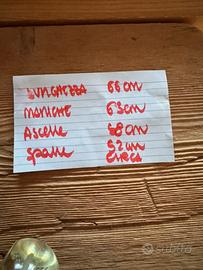 LUNGHEZZA 66 cm
MANICHE 63 cm
ASCELLE 58 cm
SPALLE 52 cm
CIRCA
subito